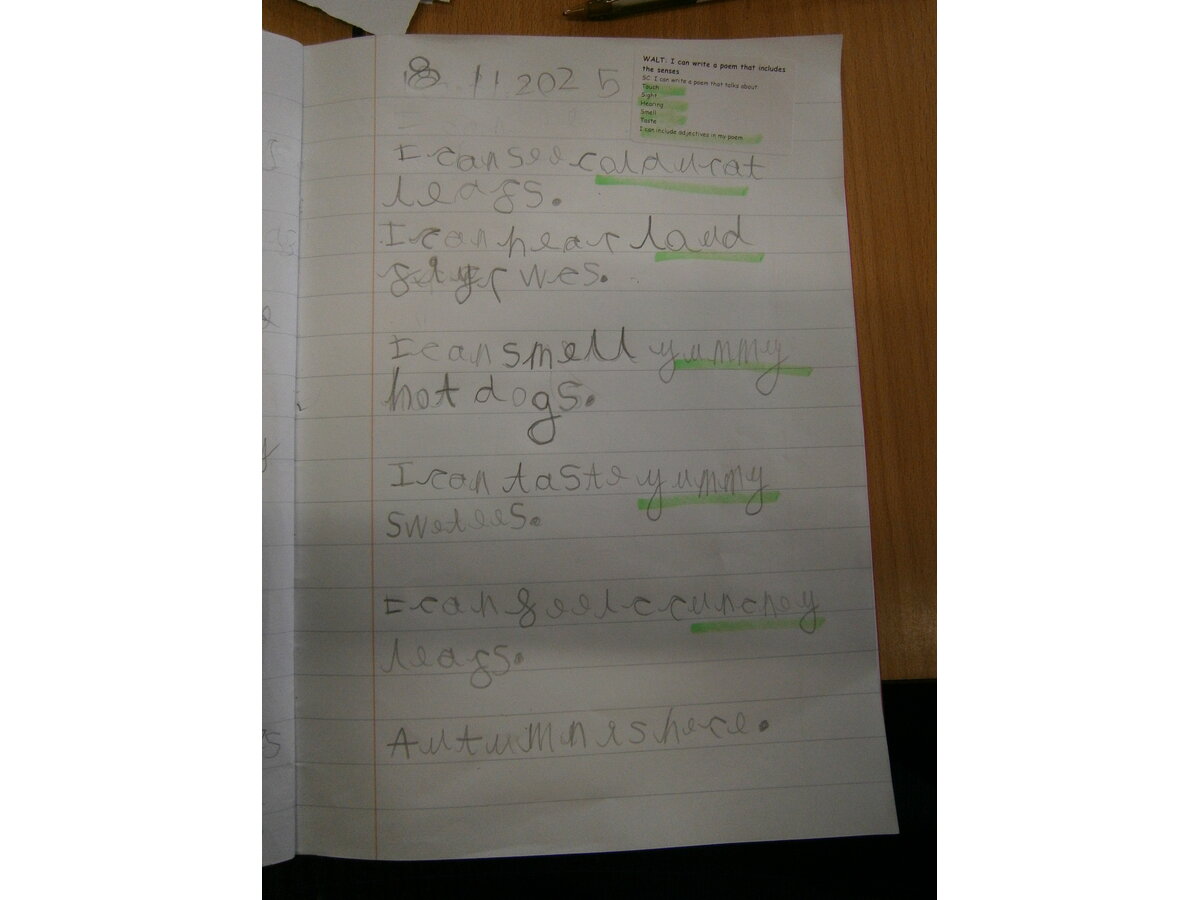 8 11 2025
WALT: I can write a poem that includes
the senses
SC I can write a poem that talks about:
Touch
Sight
Hearing
Smell
Taste
I can include adjectives in my poem
I can see
leafs.
I can hear laud
I can smell yummy
hot dogs.
I can taste yummy
swetees.
I can feel crunchey
leafs.
Autumn is here.